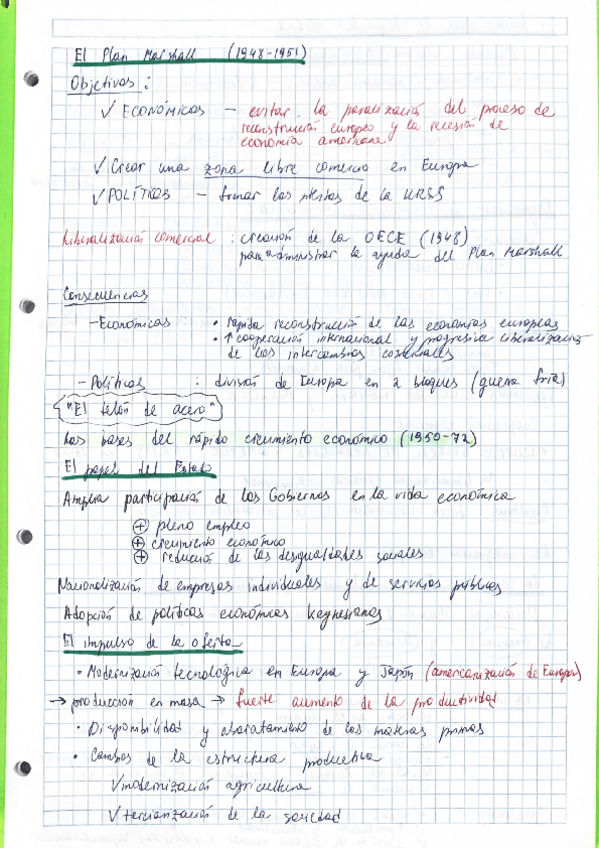 El Plan Marshall (1948-1951)
Objetivos :
✓ ECONÓMICOS – evitar la paralización del proceso de
reconstrucción europeo y la recesión de
economía americana.
✓ Crear una zona libre comercio en Europa
✓ POLÍTICOS – frenar las de la URSS
Liberalización comercial : creación de la OECE (1948)
para administrar la ayuda del Plan Marshall
Consecuencias
– Económicas : • rápida reconstrucción de las economías europeas
• ↑ cooperación internacional y progresiva liberalización
de los intercambios comerciales
– Políticas : división de Europa en 2 bloques (guerra fría)
"El telón de acero"
Las bases del rápido crecimiento económico (1950-72)
El papel del Estado
Amplia participación de los Gobiernos en la vida económica
⊕ pleno empleo
⊕ crecimiento económico
⊕ reducción de las desigualdades sociales
Nacionalización de empresas individuales y de servicios públicos
Adopción de políticas económicas keynesianas
El impulso de la oferta
• Modernización tecnológica en Europa y Japón (americanización de Europa)
→ producción en masa → fuerte aumento de la productividad
• Disponibilidad y abaratamiento de las materias primas
• Cambios de la estructura productiva
✓ modernización agricultura
✓ terciarización de la sociedad